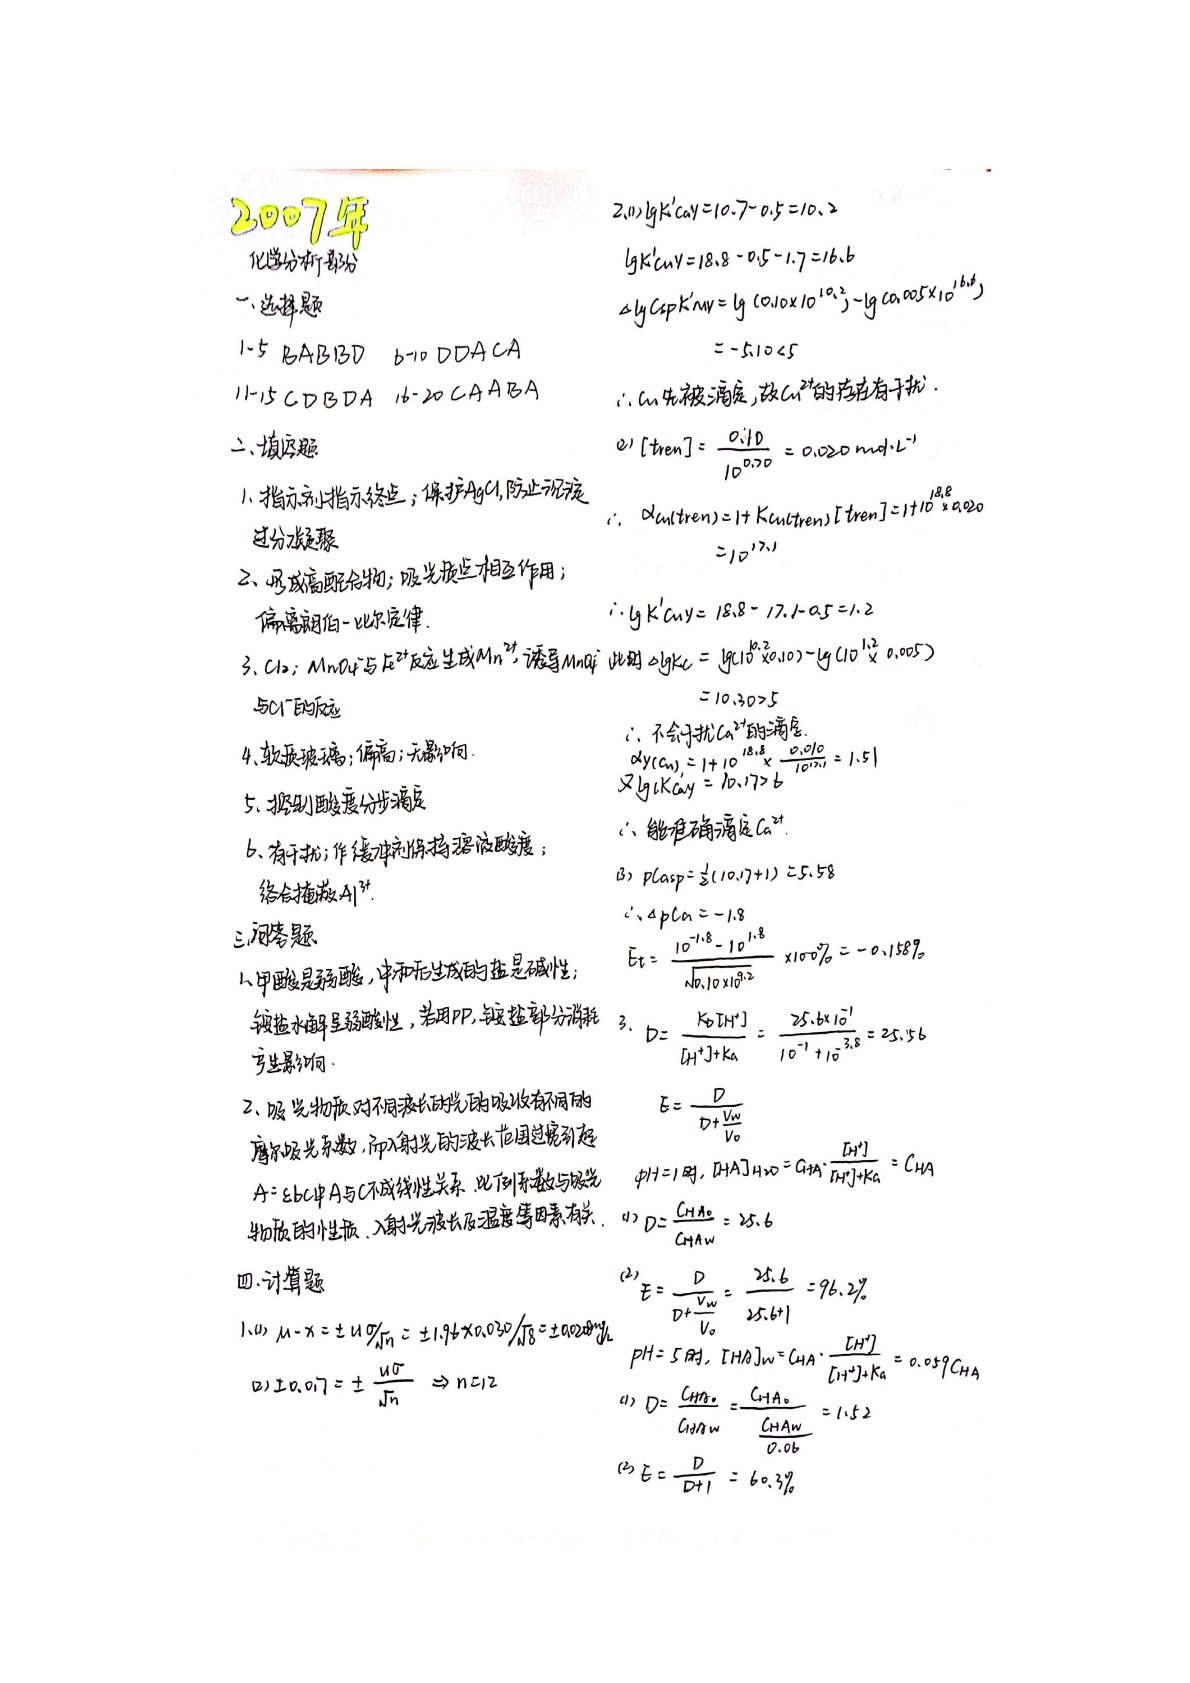 2007年
化学分析部分
一、选择题
1-5 BABBD 6-10 DDACA
11-15 CDBDA 16-20 CAABA
二、填空题
1、指示剂指示终点；保护AgCl，防止沉淀
过分凝聚
2、形成高配合物；吸光质点相互作用；
偏离朗伯-比尔定律.
3、Cl₂；MnO₄⁻与Fe²⁺反应生成Mn²⁺，诱导MnO₄⁻
与Cl⁻的反应
4、软质玻璃；偏高；无影响.
5、控制酸度分步滴定
6、有干扰；作缓冲剂保持溶液酸度；
络合掩蔽Al³⁺.
三、问答题
1、甲酸是弱酸，中和后生成的盐是碱性；
铵盐水解呈弱酸性，若用PP，铵盐部分消耗
产生影响.
2、吸光物质对不同波长的光的吸收有不同的
摩尔吸光系数，而入射光的波长范围过宽引起
A=εbc中A与C不成线性关系.比例系数与吸光
物质的性质、入射光波长及温度等因素有关.
四、计算题
1.(1) μ-x=±uσ/√n=±1.96×0.030/√8=±0.0208mg/L
(2) ±0.017=± uσ/√n ⇒ n=12
2.(1) lgK'CaY=10.7-0.5=10.2
lgK'CuY=18.8-0.5-1.7=16.6
△lgCspK'MY=lg(0.10×10^10.2)-lg(0.005×10^16.6)
=-5.10<5
∴Cu先被滴定，故Cu²⁺的存在有干扰.
(2) [tren]= 0.10/10^0.70 =0.020mol·L⁻¹
∴ αCu(tren)=1+KCu(tren)[tren]=1+10^18.8×0.020
=10^17.1
∴lgK'CuY=18.8-17.1-0.5=1.2
此时△lgKc=lg(10^10.2×0.10)-lg(10^1.2×0.005)
=10.30>5
∴不会干扰Ca²⁺的滴定.
αY(Cu)=1+10^18.8× 0.010/10^17.1 =1.51
又lgCK'CaY=10.17>6
∴能准确滴定Ca²⁺.
(3) pCasp=½(10.17+1)=5.58
∴△pCa=-1.8
Et= (10^-1.8-10^1.8)/√(0.10×10^9.2) ×100%=-0.158%
3. D= KD[H⁺]/([H⁺]+Ka) = 25.6×10⁻¹/(10⁻¹+10^-3.8) =25.56
E= D/(D+Vw/Vo)
pH=1时，[HA]H₂O=CHA· [H⁺]/([H⁺]+Ka) =CHA
(1) D= CHAo/CHAw =25.6
(2) E= D/(D+Vw/Vo) = 25.6/(25.6+1) =96.2%
pH=5时，[HA]w=CHA· [H⁺]/([H⁺]+Ka) =0.059CHA
(1) D= CHAo/CHAw = CHAo/(CHAw/0.06) =1.52
(2) E= D/(D+1) =60.3%